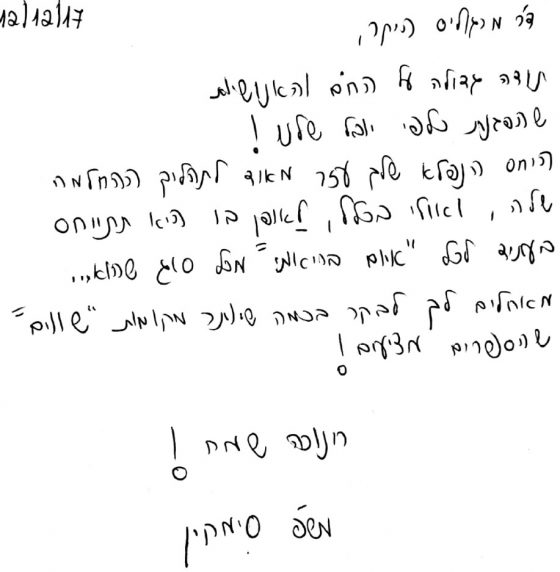 12/12/17
ד"ר מרגוליס היקר,
תודה גדולה על החום והאנושיות
שהפגנת כלפי יובל שלנו!
היחס הנפלא שלך עזר מאוד לתהליך ההחלמה
שלה, ואולי בכלל, לאופן בו היא תתייחס
בעתיד לכל "איום בריאותי" מכל סוג שהוא...
מאחלים לך לבקר בכמה שיותר מקומות "שווים"
שהספרים מציעים!
חנוכה שמח!
משפ' סימקין